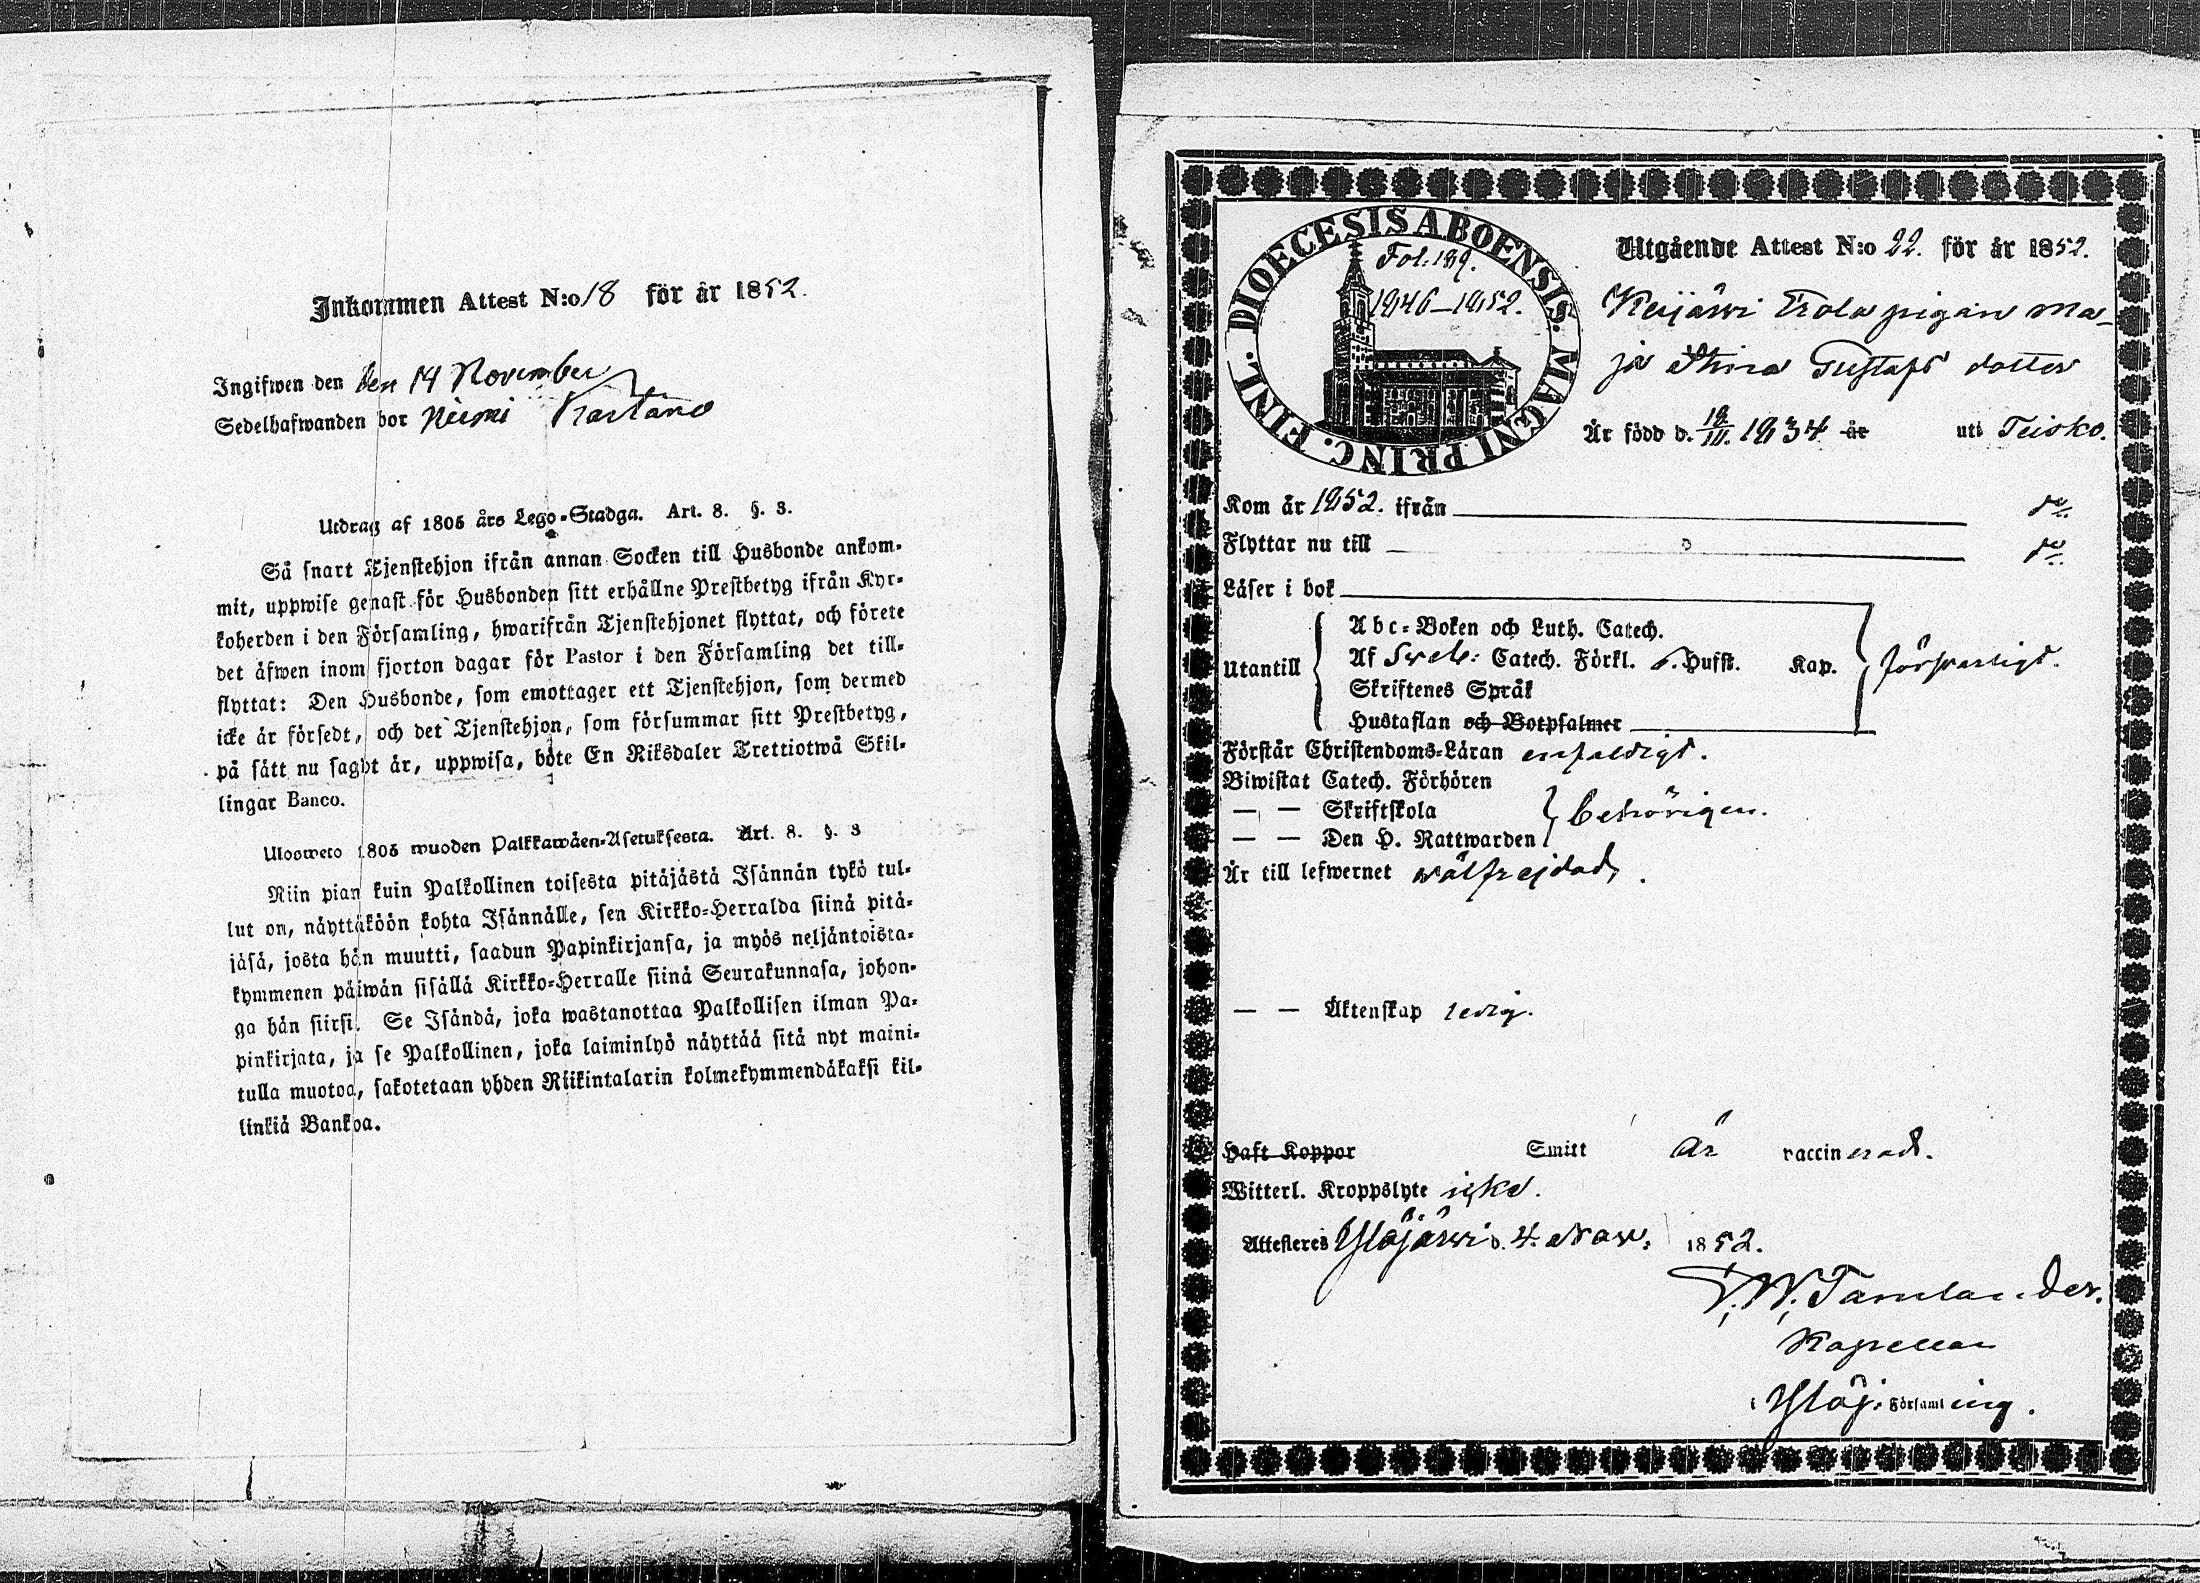 Inkommen Attest N:o 18 för år 1852.
Ingifwen den den 14 November
Sedelhafwanden bor Niemi Kartano
Utdrag af 1805 års Lego-Stadga. Art. 8. §. 3.
Så snart Tjenstehjon ifrån annan Socken till Husbonde ankom-
mit, uppwise genast för Husbonden sitt erhållne Prestbetyg ifrån Kyr-
koherden i den Församling, hwarifrån Tjenstehjonet flyttat, och förete
det äfwen inom fjorton dagar för Pastor i den Församling det till-
flyttat: Den Husbonde, som emottager ett Tjenstehjon, som dermed
icke är försedt, och det Tjenstehjon, som försummar sitt Prestbetyg,
på sätt nu sagdt är, uppwisa, böte En Riksdaler Trettiotwå Skil-
lingar Banco.
Ulosweto 1805 wuoden Palkkawäen-Asetuksesta. Art. 8. §. 3
Niin pian kuin Palkollinen toisesta pitäjästä Isännän tykö tul-
lut on, näyttäköön kohta Isännälle, sen Kirkko-Herralda siinä pitä-
jäsä, josta hän muutti, saadun Papinkirjansa, ja myös neljäntoista-
kymmenen päiwän sisällä Kirkko-Herralle siinä Seurakunnasa, johon-
ga hän siirsi. Se Isändä, joka wastanottaa Palkollisen ilman Pa-
pinkirjata, ja se Palkollinen, joka laiminlyö näyttää sitä nyt maini-
tulla muotoa, sakotetaan yhden Riikintalarin kolmekymmendäkaksi kil-
linkiä Bankoa.
DIOECESIS ABOENSIS. MAGNI PRINC. FINL.
Fol: 189.
1846–1852.
Utgående Attest N:o 22. för år 1852.
Keijärwi Erola pigan Ma-
ja Stina Gustafs dotter
Är född d. 18/III. 1834 år uti Teisko.
Kom år 1852. ifrån do.
Flyttar nu till do.
Läser i bok
Utantill
Abc-Boken och Luth. Catech.
Af Sveb: Catech. Förkl. 6. Hufst. Kap. försvarligt.
Skriftenes Språk
Hustaflan och Botpsalmer
Förstår Christendoms-Läran enfaldigt.
Biwistat Catech. Förhören
— — Skriftskola behörigen.
— — Den H. Nattwarden
Är till lefwernet wälfrejdad.
— — Äktenskap ledig.
Haft Koppor Smitt är vaccinerad.
Witterl. Kroppslyte icke.
Attesteres Ylöjärwi d. 4. Nov: 1852.
Tamlander.
Kapellan
i Ylöj. Församling.